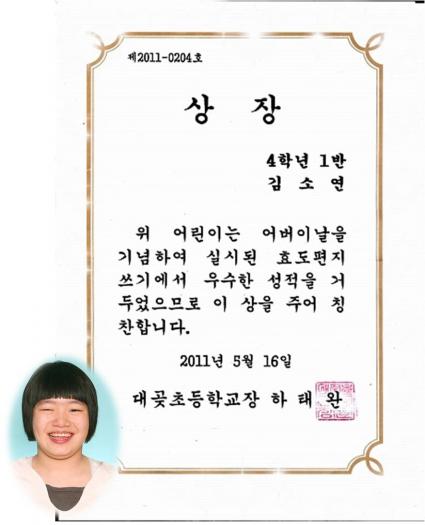 제2011-0204호
상 장
4학년 1반
김 소 연
위 어린이는 어버이날을
기념하여 실시된 효도편지
쓰기에서 우수한 성적을 거
두었으므로 이 상을 주어 칭
찬합니다.
2011년 5월 16일
대곶초등학교장 하 태 완